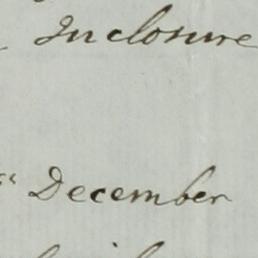 Inclosure
December